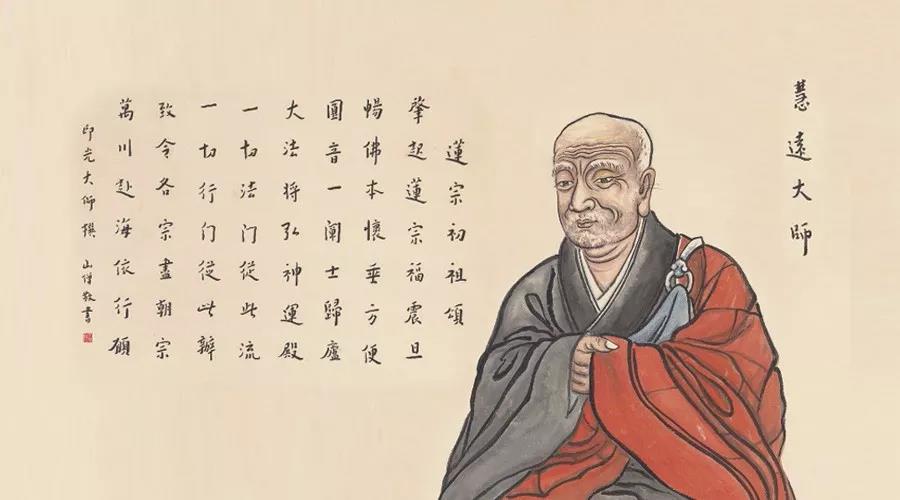 慧遠大師
蓮宗初祖頌
肇起蓮宗福震旦
暢佛本懷垂方便
圓音一闡士歸廬
大法將弘神運殿
一切法门從此流
一切行门從此辦
致令各宗盡朝宗
萬川赴海依行願
印光大师撰 山僧敬書